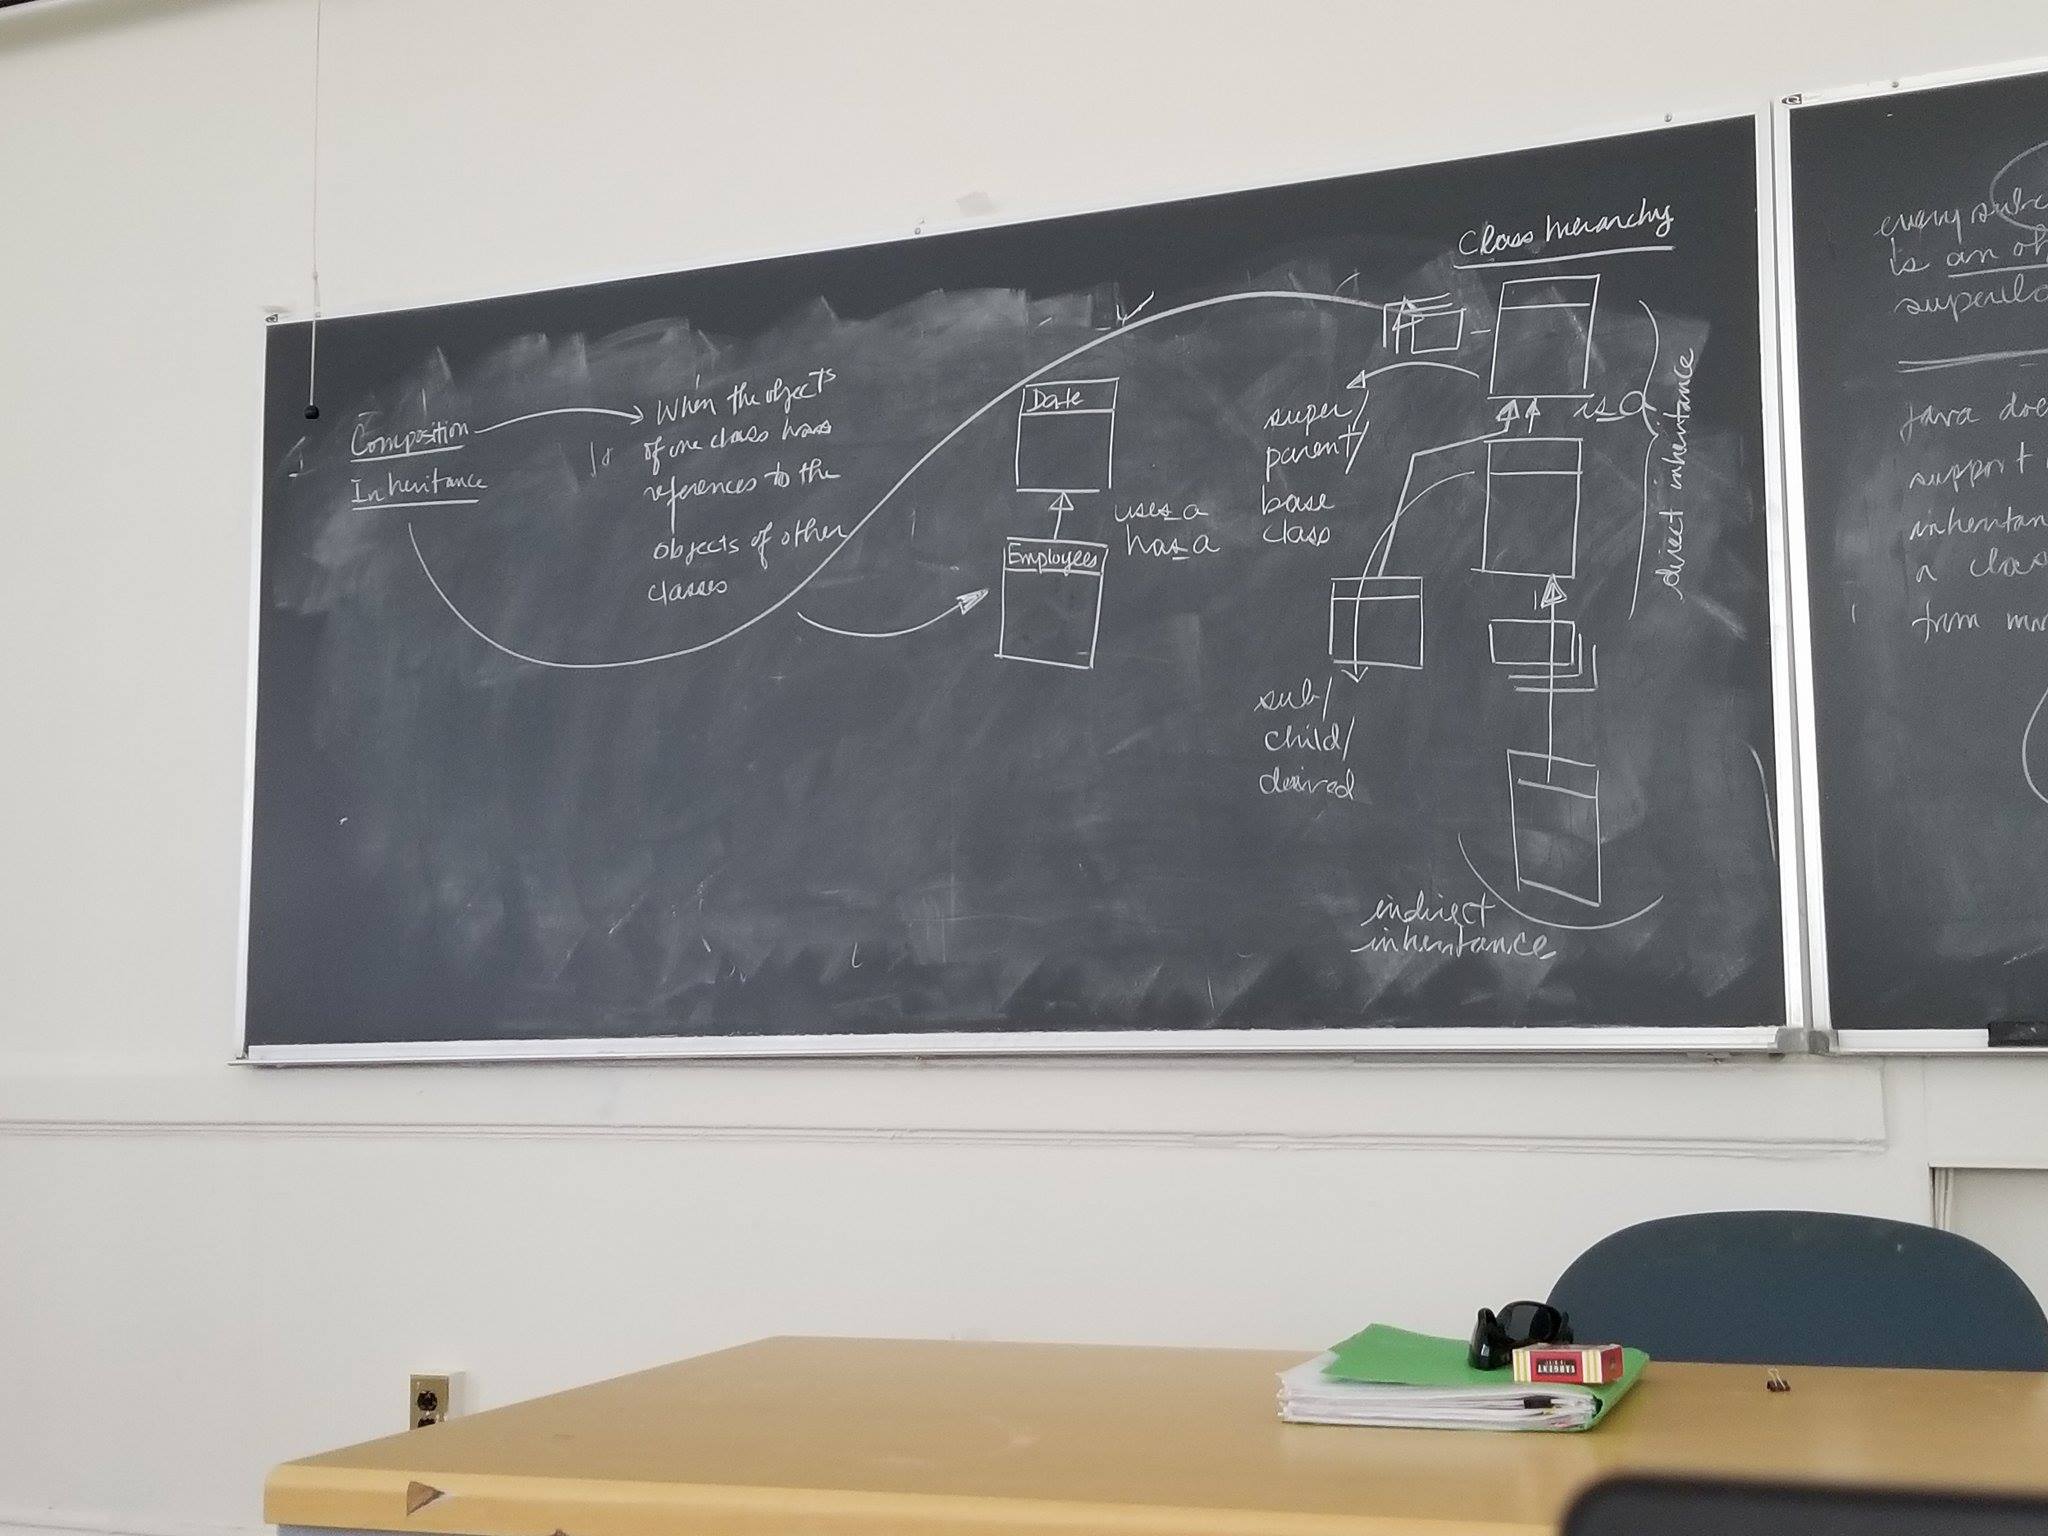 Composition
Inheritance
When the objects
of one class has
references to the
objects of other
classes
Date
Employees
uses_a
has_a
Class hierarchy
super/
parent/
base
class
is_a
direct inheritance
sub/
child/
desired
indirect
inheritance
every sub-c
is an ob
supercla
java doe
support
inheritan
a clas
from
SARGENT